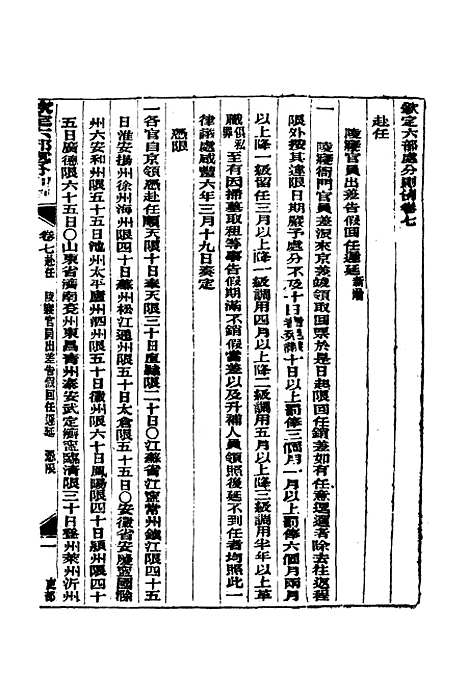 欽定六部處分則例卷七
赴任
陵寢官員出差告假回任遲延新增
一陵寢衙門官員差派來京差竣領取回票於是日起限回任銷差如有任意逗遛者除去往返程
限外按其違限日期嚴予處分不及十日者免議十日以上罰俸三個月一月以上罰俸六個月兩月
以上降一級留任三月以上降一級調用四月以上降二級調用五月以上降三級調用半年以上革
職俱私罪至有因掃墓取租等事告假期滿不銷假當差以及升補人員領照後延不到任者均照此一
律議處咸豐六年三月十九日奏定
憑限
一各官自京領憑赴任順天限十日奉天限三十日直隸限二十日〇江蘇省江寧常州鎮江限四十五
日淮安揚州徐州海州限四十日蘇州松江通州限五十日太倉限五十五日〇安徽省安慶寧國滁
州六安和州限五十五日池州太平廬州泗州限五十日徽州限六十日鳳陽限四十日潁州限四十
五日廣德限六十五日〇山東省濟南兗州東昌青州泰安武定濟寧臨清限三十日登州萊州沂州
欽定六部處分則例 卷七赴任 陵寢官員出差告假回任遲延 憑限 一 吏部